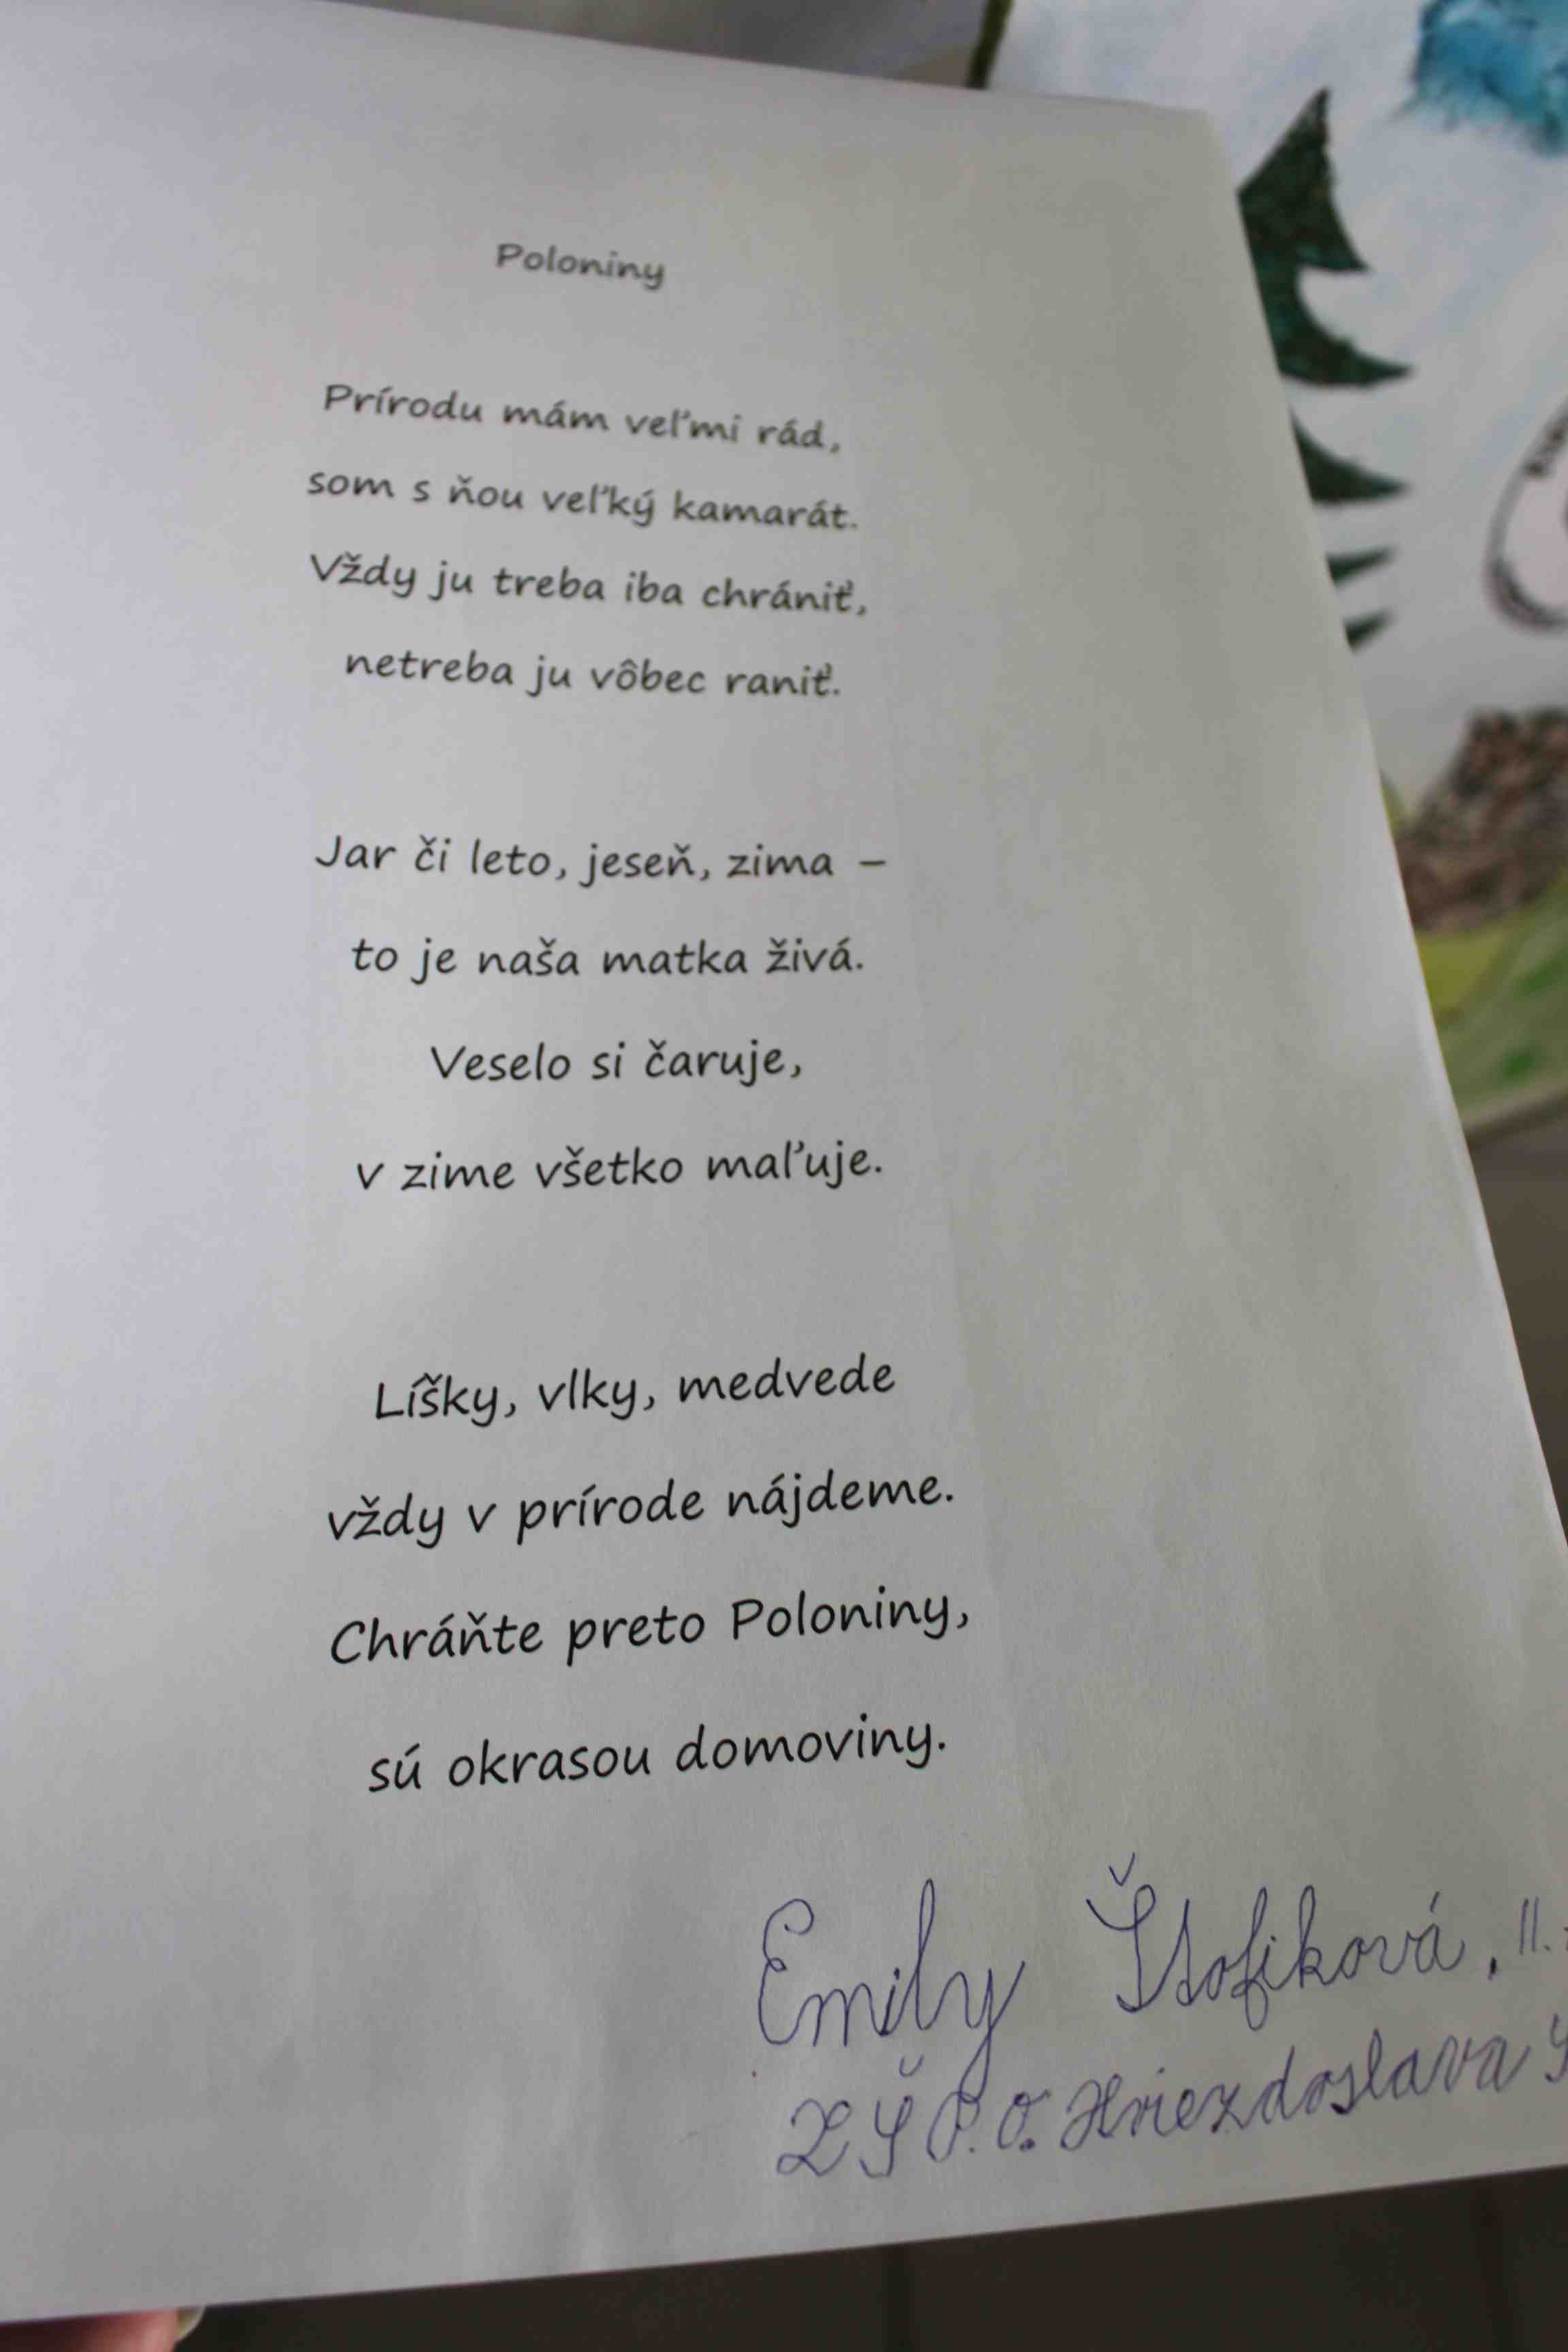 Poloniny
Prírodu mám veľmi rád,
som s ňou veľký kamarát.
Vždy ju treba iba chrániť,
netreba ju vôbec raniť.
Jar či leto, jeseň, zima –
to je naša matka živá.
Veselo si čaruje,
v zime všetko maľuje.
Líšky, vlky, medvede
vždy v prírode nájdeme.
Chráňte preto Poloniny,
sú okrasou domoviny.
Emily Štofiková, II.
ZŠ P. O. Hviezdoslava